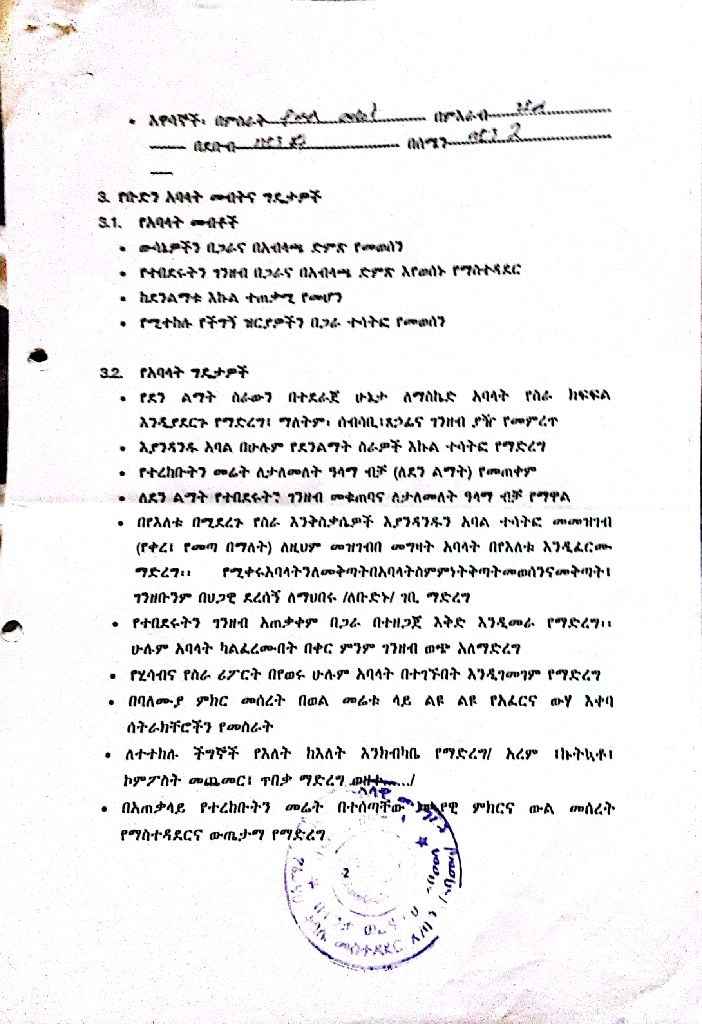 • አዋሳኞች፡ በምስራት በምእራብ
በደቡብ በሰሜን
3. የቡድን አባላት መብትና ግዴታዎች
3.1. የአባላት መብቶች
• ውሳኔዎችን በጋራና በአብላጫ ድምጽ የመወሰን
• የተበደሩትን ገንዘብ በጋራና በአብላጫ ድምጽ እየወሰኑ የማስተዳደር
• ከደንልማቱ እኩል ተጠቃሚ የመሆን
• የሚተከሉ የችግኝ ዝርያዎችን በጋራ ተሳትፎ የመወሰን
3.2. የአባላት ግዴታዎች
• የደን ልማት ስራውን በተደራጀ ሁኔታ ለማስኬድ አባላት የስራ ክፍፍል
እንዲያደርጉ የማድረግ፤ ማለትም፡ ሰብሳቢ፤ጸኃፊና ገንዘብ ያዥ የመምረጥ
• እያንዳንዱ አባል በሁሉም የደንልማት ስራዎች እኩል ተሳትፎ የማድረግ
• የተረከቡትን መሬት ለታለመለት ዓላማ ብቻ (ለደን ልማት) የመጠቀም
• ለደን ልማት የተበደሩትን ገንዘብ መቁጠባና ለታለመለት ዓላማ ብቻ የማዋል
• በየእለቱ በሚደረጉ የስራ እንቅስቃሴዎች እያንዳንዱን አባል ተሳትፎ መመዝገብ
(የቀረ፤ የመጣ በማለት) ለዚህም መዝገብበ መግዛት አባላት በየእለቱ እንዲፈርሙ
ማድረግ፡፡ የሚቀሩአባላትንለመቅጣትበአባላትስምምነትቅጣትመወሰንናመቅጣት፤
ገንዘቡንም በህጋዊ ደረሰኝ ለማህበሩ /ለቡድኑ/ ገቢ ማድረግ
• የተበደሩትን ገንዘብ አጠቃቀም በጋራ በተዘጋጀ እቅድ እንዲመራ የማድረግ፡፡
ሁሉም አባላት ካልፈረሙበት በቀር ምንም ገንዘብ ወጭ አለማድረግ
• የሂሳብና የስራ ሪፖርት በየወሩ ሁሉም አባላት በተገኙበት እንዲገመገም የማድረግ
• በባለሙያ ምክር መሰረት በወል መሬቱ ላይ ልዩ ልዩ የአፈርና ውሃ እቀባ
ሰትራክቸሮችን የመስራት
• ለተተከሉ ችግኞች የእለት ከእለት እንክብካቤ የማድረግ/ አረም ፤ኩትኳቶ፤
ኮምፖስት መጨመር፤ ጥበቃ ማድረግ ወዘተ...../
• በአጠቃላይ የተረከቡትን መሬት በተሰጣቸው ምክር ውል መሰረት
የማስተዳደርና ውጤታማ የማድረግ
2